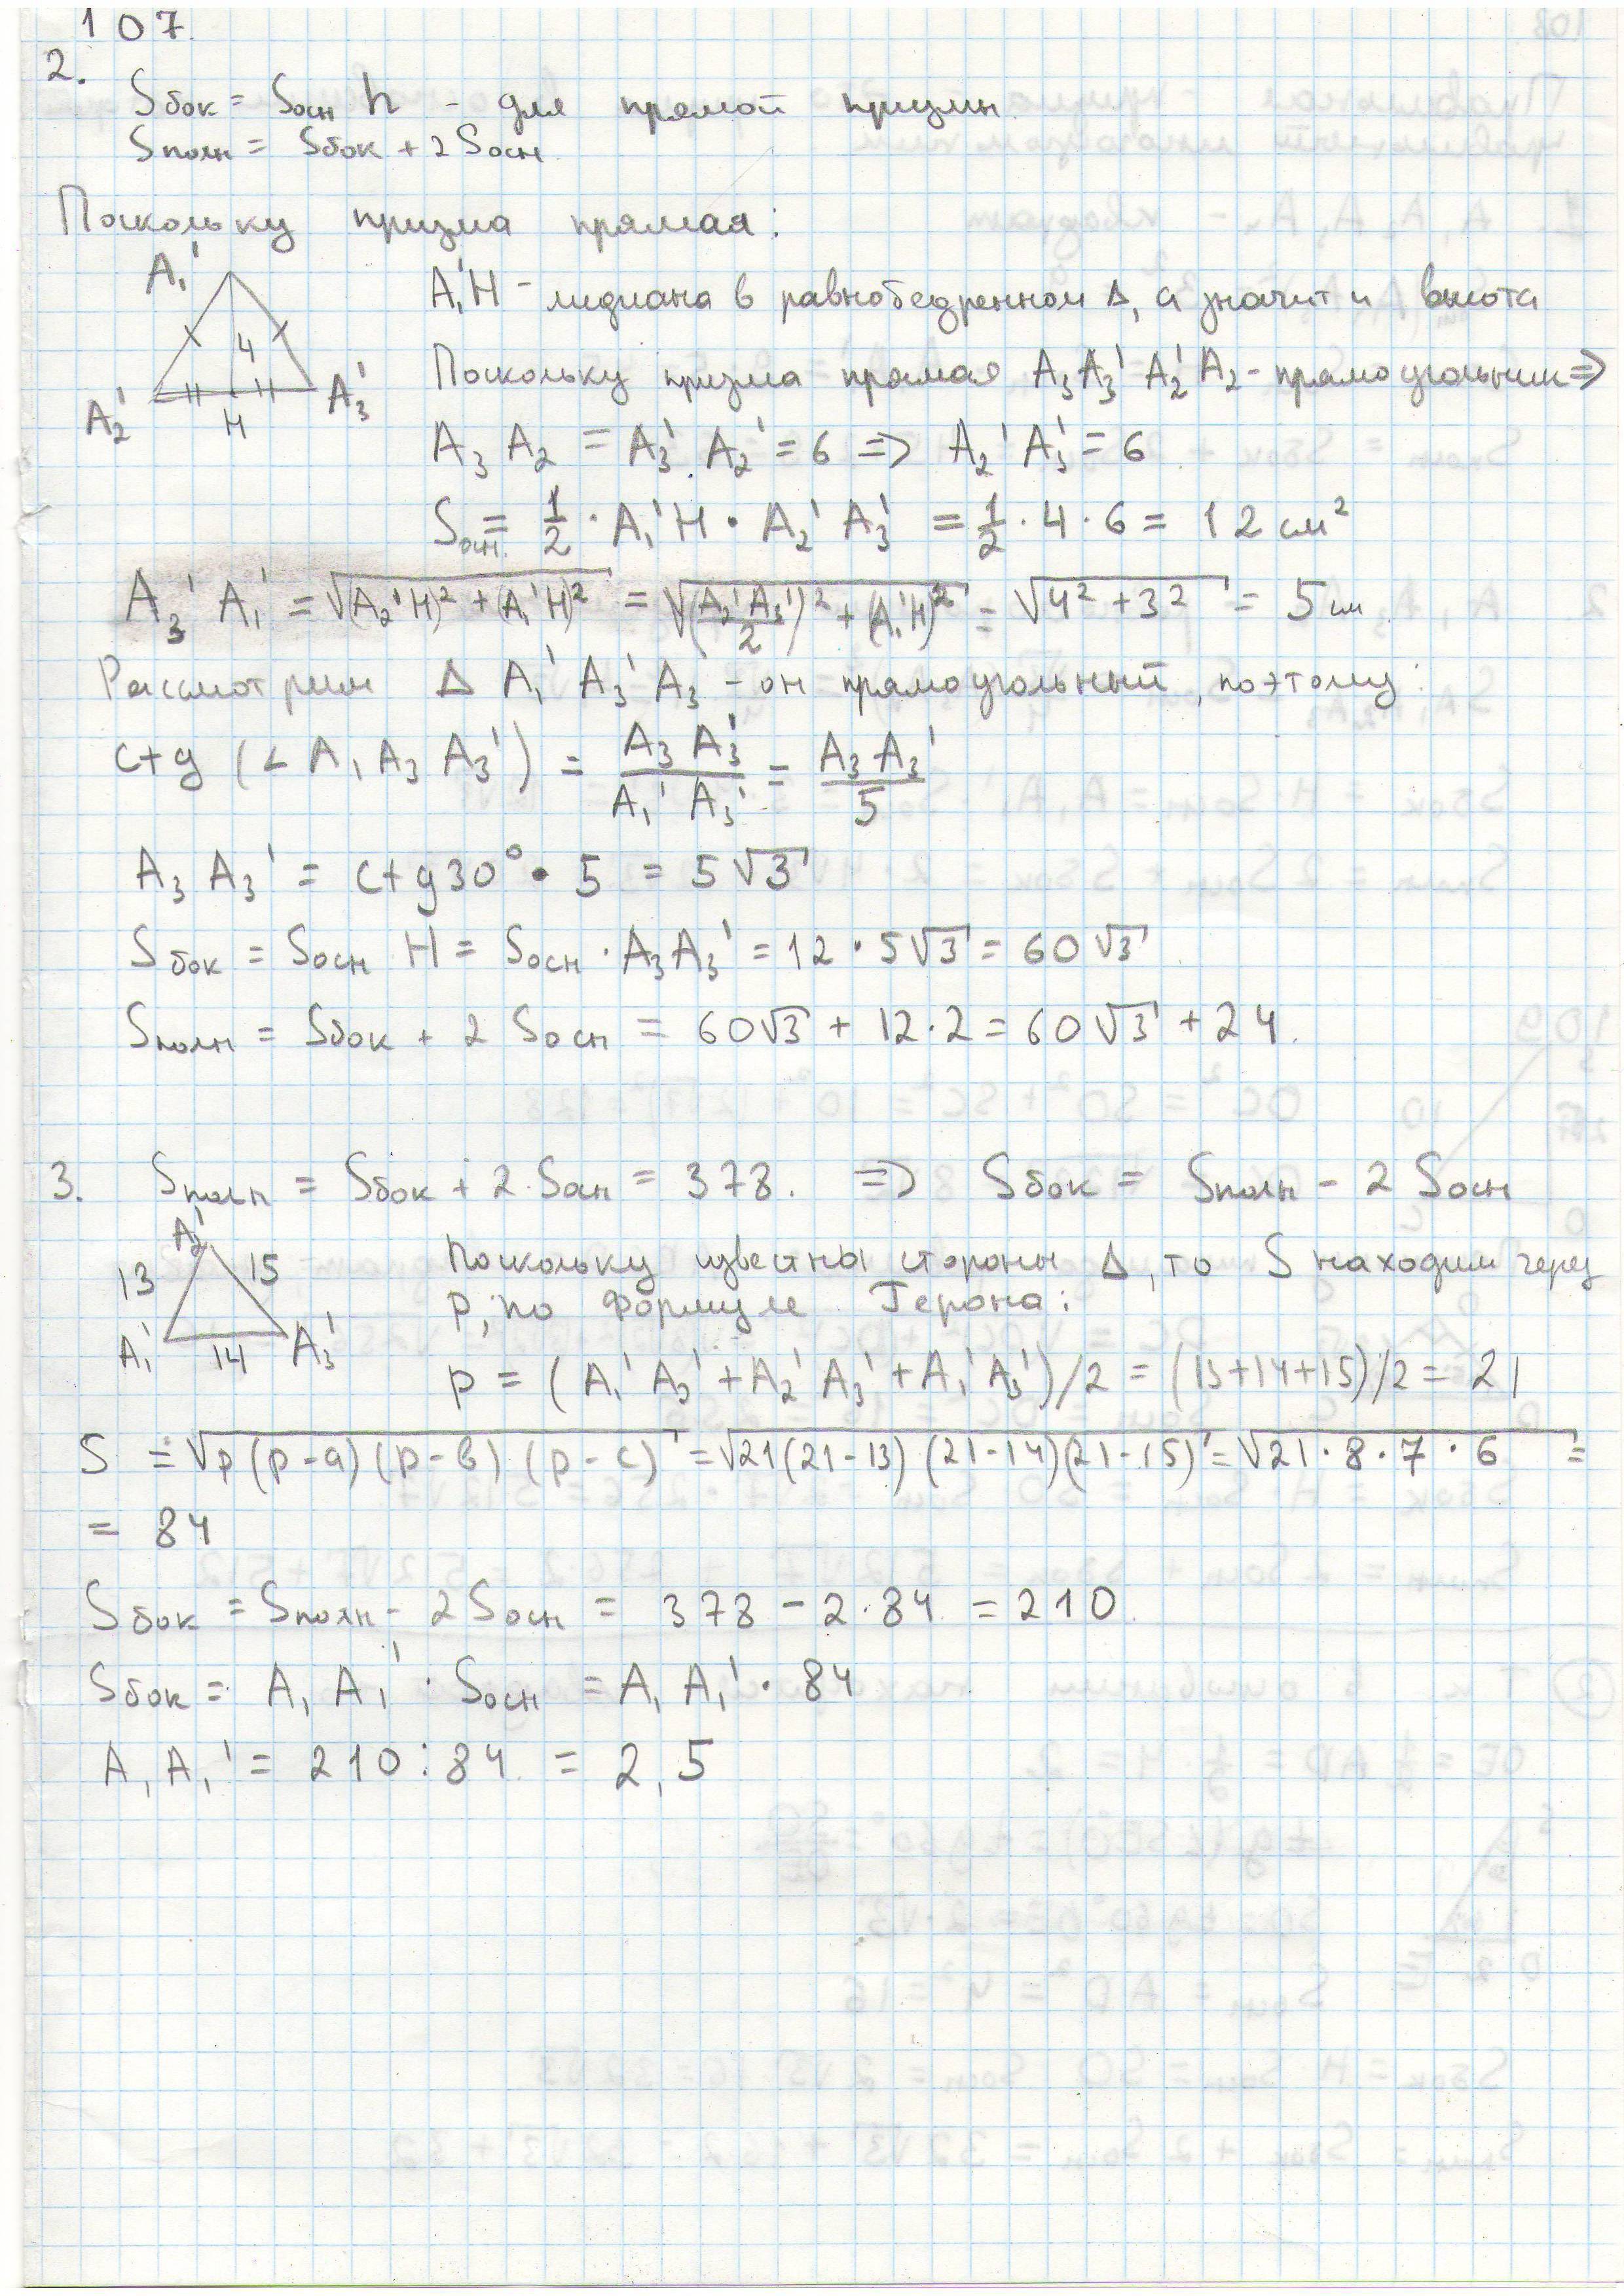 107.
2.
Sбок = Sосн h - для прямой призмы
Sполн = Sбок + 2 Sосн
Поскольку призма прямая:
A₁' 4 A₂' H A₃'
A₁'H - медиана в равнобедренном Δ, а значит и высота
Поскольку призма прямая A₃A₃'A₂'A₂ - прямоугольник =>
A₃ A₂ = A₃' A₂' = 6 => A₂' A₃' = 6
Sосн. = 1/2 · A₁'H · A₂' A₃' = 1/2 · 4 · 6 = 12 см²
A₃' A₁' = √((A₂'H)² + (A₁'H)²) = √((A₂'A₃'/2)² + (A₁'H)²) = √(4² + 3²) = 5 см
Рассмотрим Δ A₁' A₃' A₃ - он прямоугольный, поэтому:
ctg (∠ A₁ A₃ A₃') = A₃ A₃' / A₁' A₃' = A₃ A₃' / 5
A₃ A₃' = ctg 30° · 5 = 5√3
Sбок = Sосн H = Sосн · A₃A₃' = 12 · 5√3 = 60√3
Sполн = Sбок + 2 Sосн = 60√3 + 12·2 = 60√3 + 24.
3. Sполн = Sбок + 2·Sосн = 378. => Sбок = Sполн - 2 Sосн
A₂' 13 15 A₁' 14 A₃'
Поскольку известны стороны Δ, то S находим через
p, по формуле Герона:
p = (A₁' A₂' + A₂' A₃' + A₁' A₃')/2 = (13+14+15)/2 = 21
S = √(p (p-a) (p-b) (p-c)) = √(21(21-13) (21-14)(21-15)) = √(21·8·7·6) =
= 84
Sбок = Sполн - 2 Sосн = 378 - 2·84 = 210
Sбок = A₁ A₁' · Sосн = A₁ A₁' · 84
A₁ A₁' = 210 : 84 = 2,5